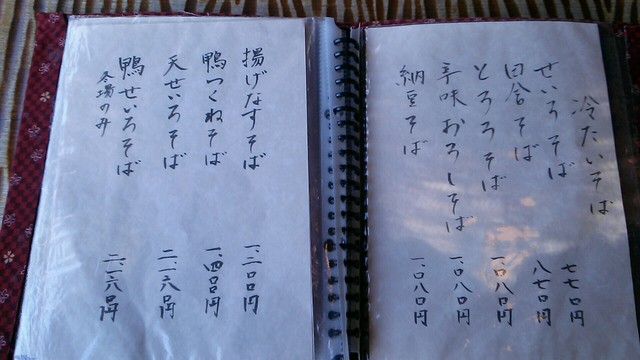 冷たいそば
せいろそば 七七〇円
田舎そば 八七〇円
とろろそば 一、〇八〇円
辛味おろしそば 一、〇八〇円
納豆そば 一、〇八〇円
揚げなすそば 一、二〇〇円
鴨つくねそば 一、四〇〇円
天せいろそば 二、一六〇円
鴨せいろそば 二、一六〇円
冬場のみ